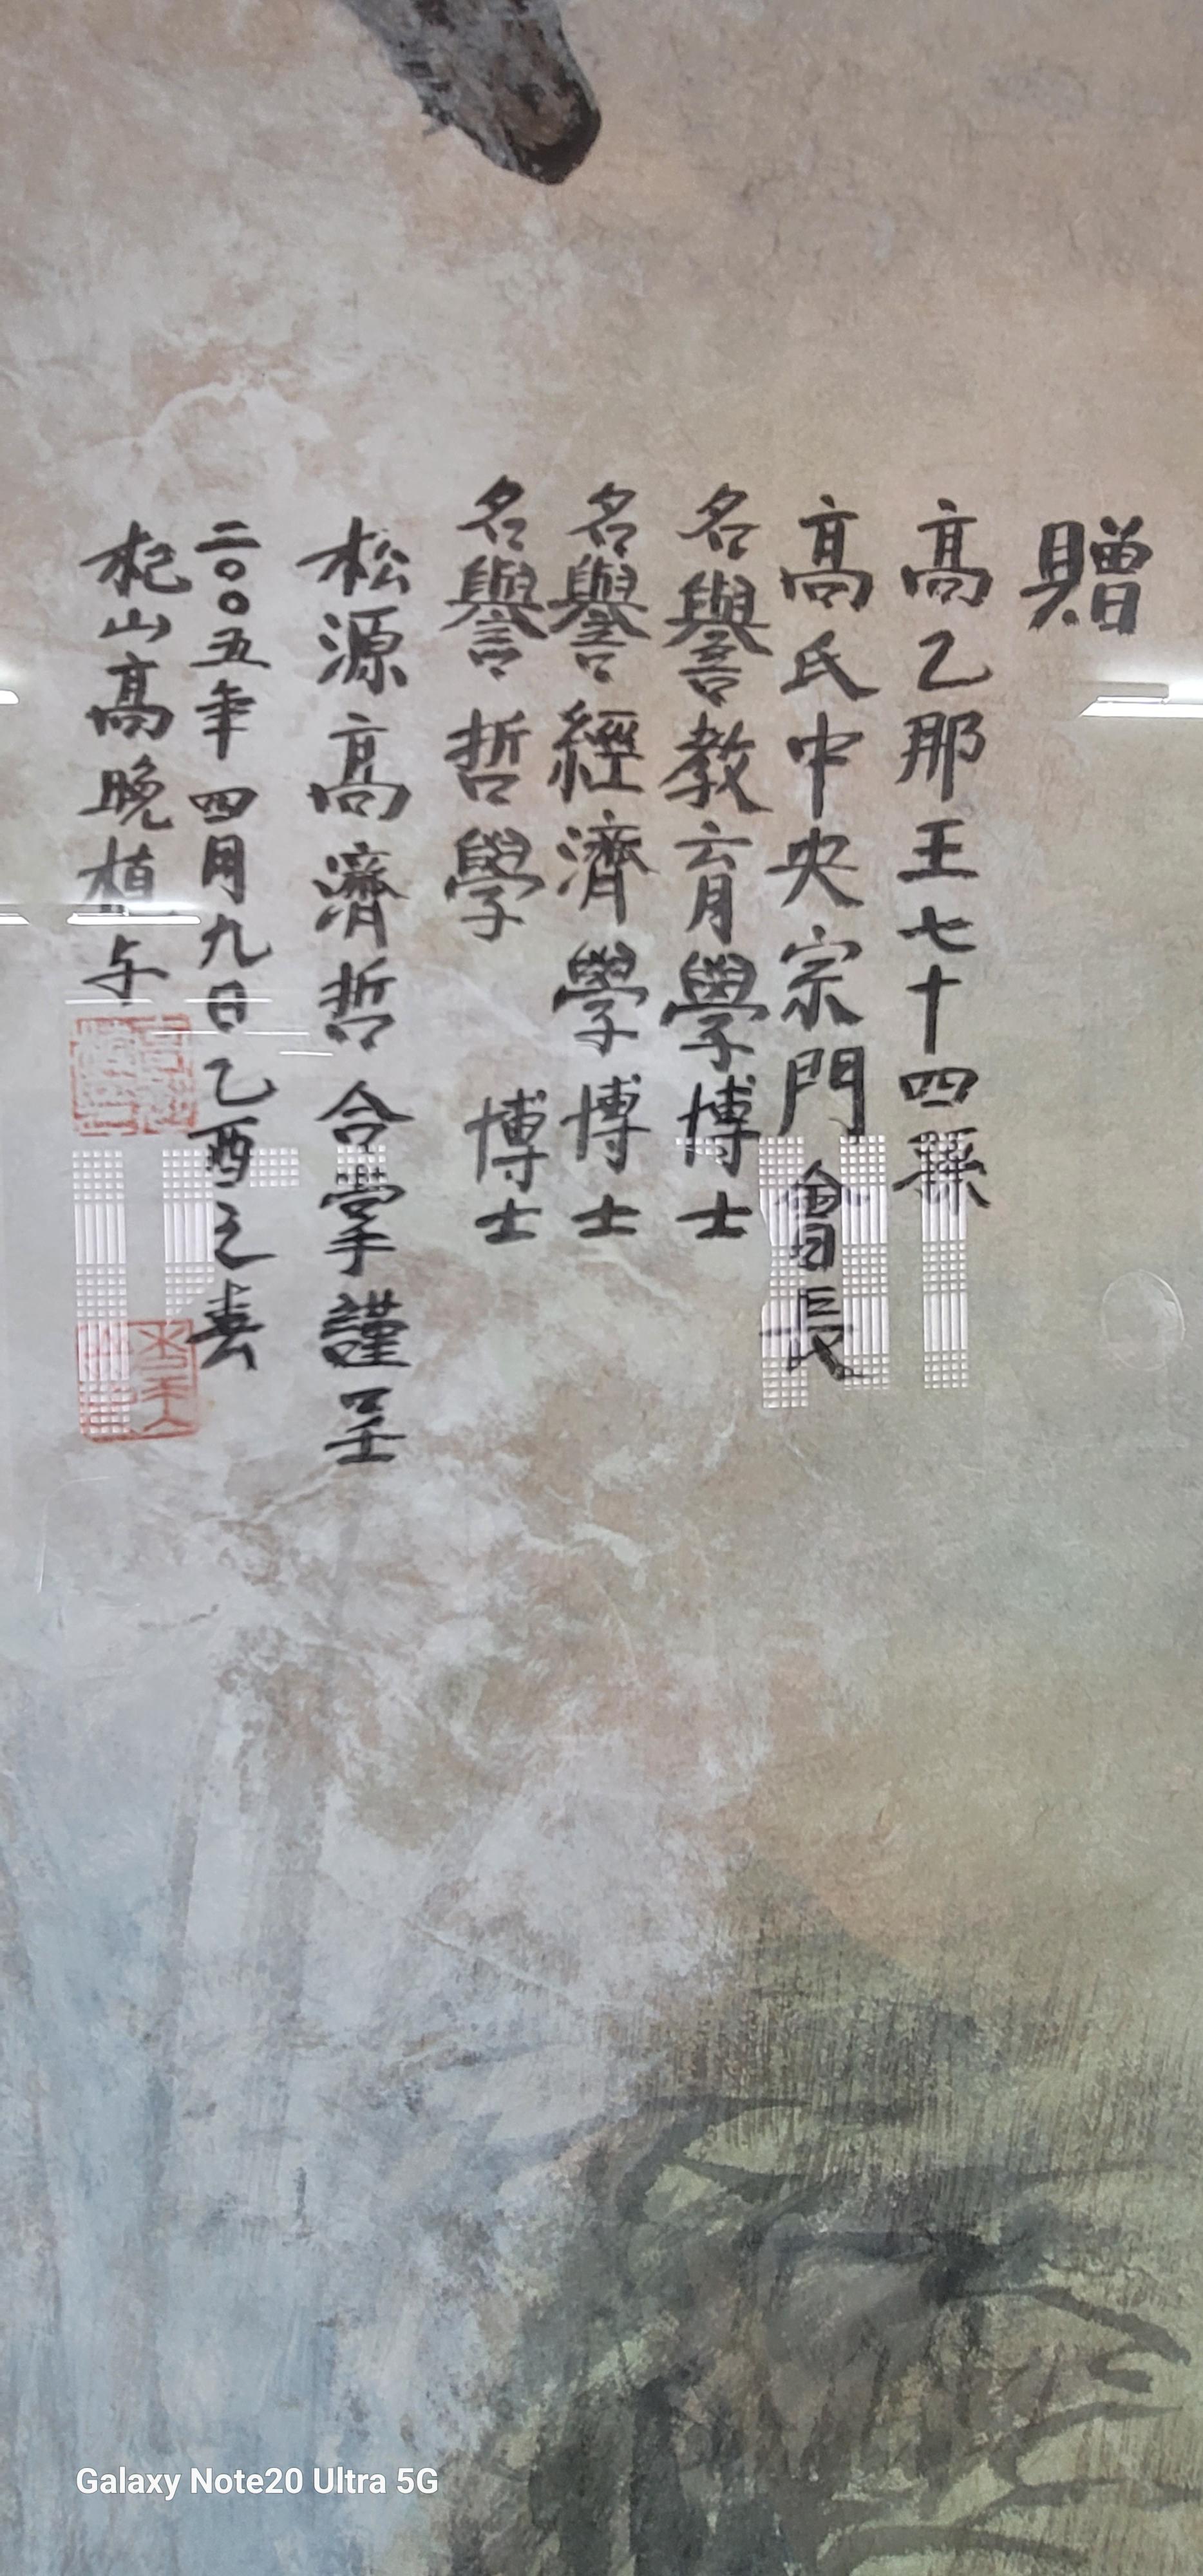 贈
高乙那王七十四孫
高氏中央宗門會長
名譽教育學博士
名譽經濟學博士
名譽哲學博士
松源高濟哲合掌謹呈
二〇〇五年四月九日乙酉之春
杞山高晩植与
Galaxy Note20 Ultra 5G